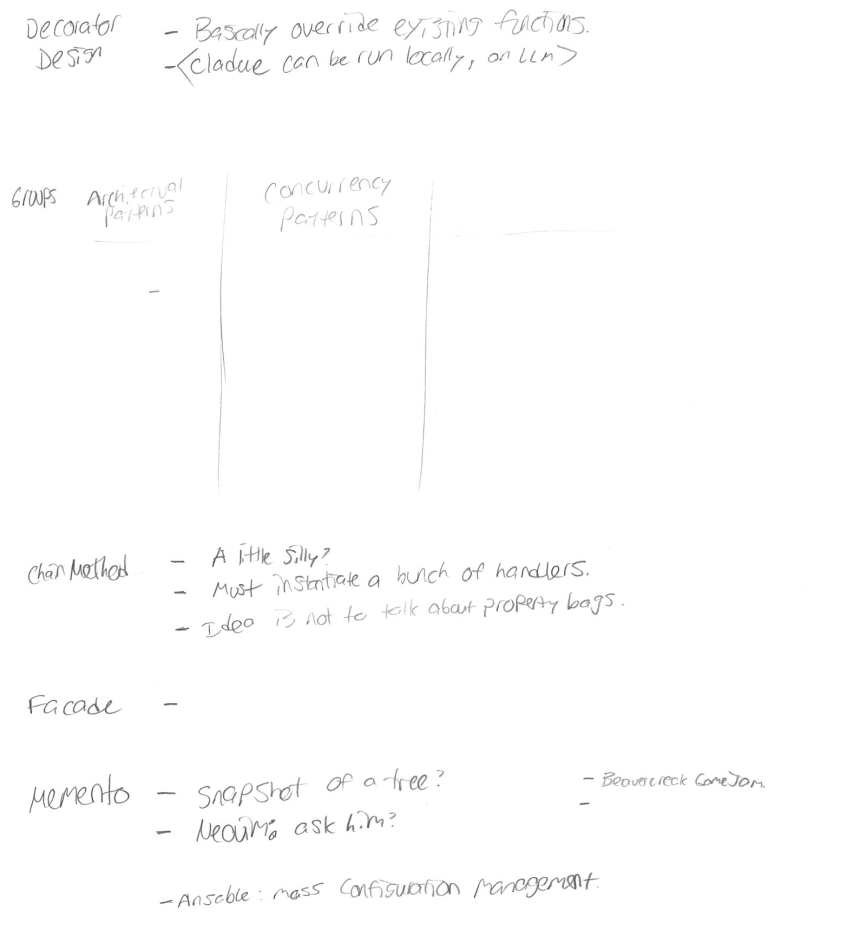 Decorator - Bascally override existing functions.
Design -<Cladue can be run locally, on LLM>
Groups Architectural Patterns
Concurrency
Patterns
Chain Method - A little silly?
- Must instantiate a bunch of handlers.
- Idea is not to talk about property bags.
Facade -
Memento - Snapshot of a tree?
- ask him?
- Beavercreek GameJam.
-
- Anscble: mass Configuration management.